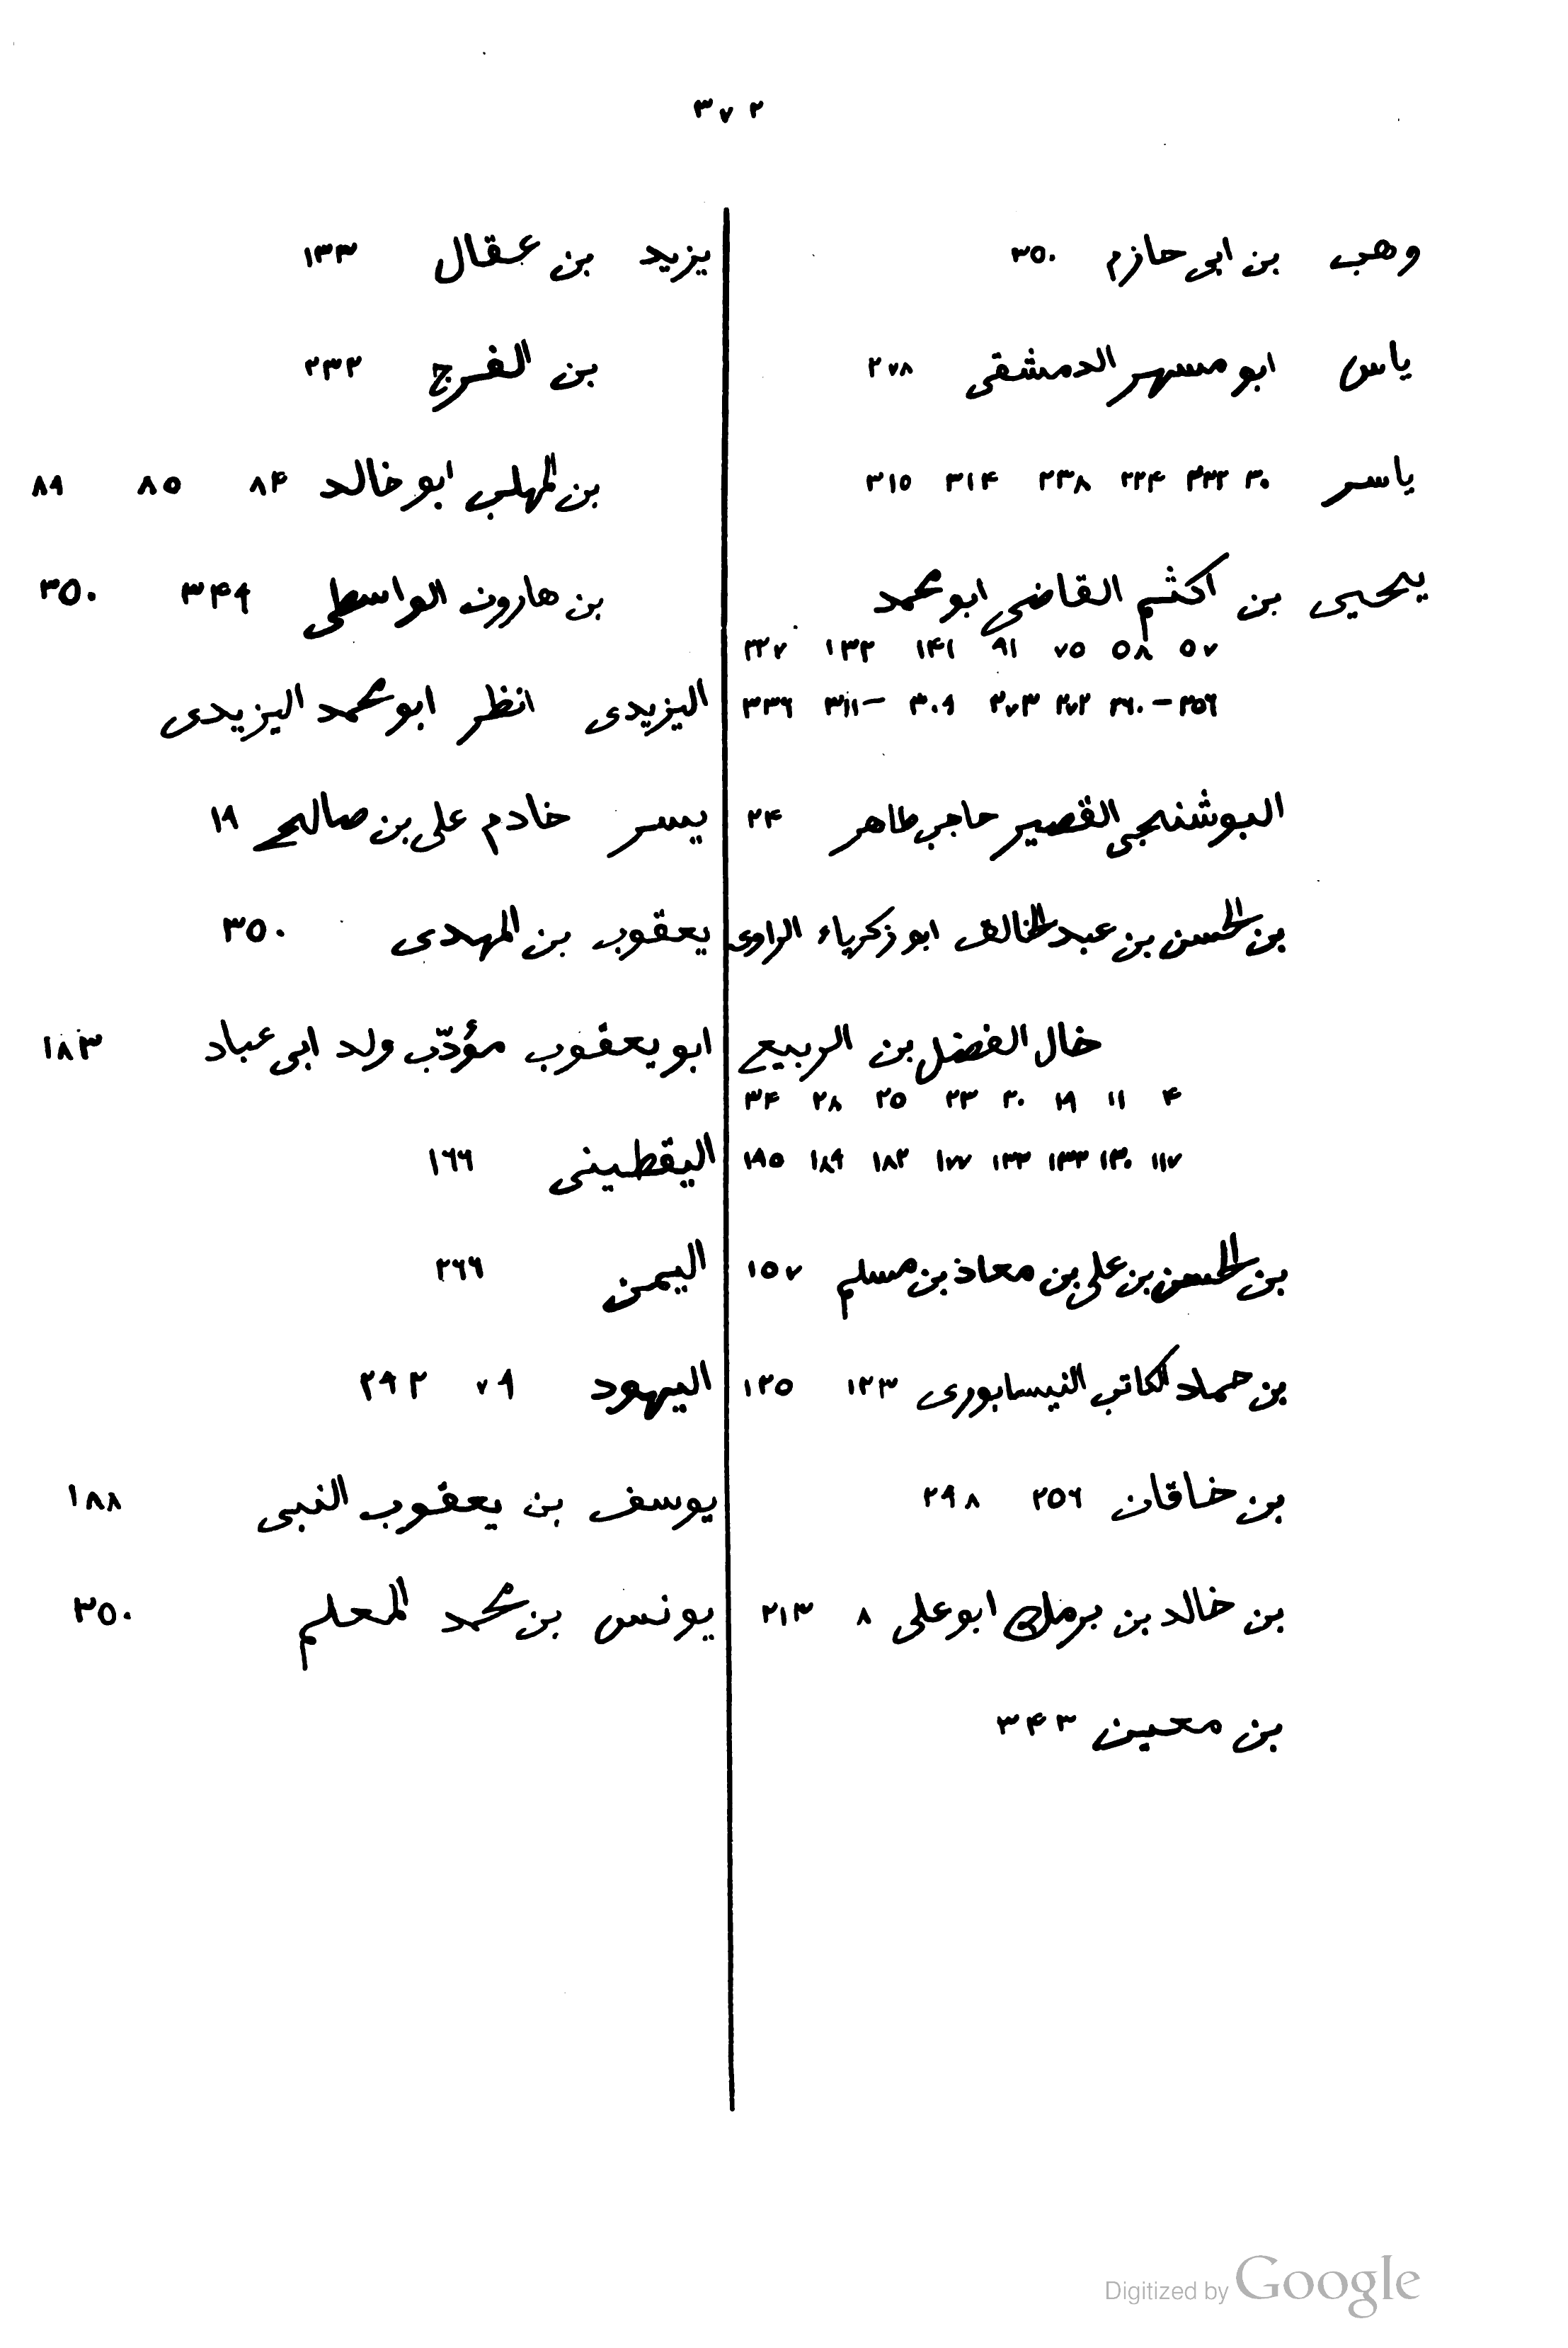 ٣٧٢
وهب بن ابى حازم ٣٥٠
ياس ابو مسهر الدمشقى ٢٧٨
ياسر ٣٠ ٢٣٣ ٢٣٤ ٢٣٨ ٣١٤ ٣١٥
يحيى بن اكثم القاضى ابو محمد
٥٧ ٥٨ ٧٥ ٩١ ١٤١ ١٣٢ ٢٢٧
٢٥٦-٢٦٠ ٢٧٢ ٢٧٣ ٣٠٩-٣١١ ٣٣٦
البوشنجى القصير حاجب طاهر ٢٤
بن الحسن بن عبد الخالق ابو زكرياء الراوى
خال الفضل بن الربيع
٤ ١١ ١٩ ٢٠ ٢٣ ٢٥ ٢٨ ٣٤
١١٧ ١٣٠ ١٣٣ ١٣٣ ١٧٧ ١٨٢ ١٨٩ ١٩٥
بن الحسن بن على بن معاذ بن مسلم ١٥٧
بن حماد الكاتب النيسابورى ١٢٣ ١٢٥
بن خاقان ٢٥٦ ٢٩٨
بن خالد بن برمك ابو على ٨ ٢١٣
بن معين ٣٤٣
يزيد بن عقال ١٣٣
بن الفرج ٢٣٢
بن المهلب ابو خالد ٨٤ ٨٥ ٨٩
بن هارون الواسطى ٣٤٩ ٣٥٠
اليزيدى انظر ابو محمد اليزيدى
يسر خادم على بن صالح ١٩
يعقوب بن المهدى ٣٥٠
ابو يعقوب مؤدّب ولد ابى عباد ١٨٣
اليقطينى ١٦٦
اليمن ٢٦٦
اليهود ٧٩ ٢٩٢
يوسف بن يعقوب النبى ١٨٨
يونس بن محمد المعلم ٣٥٠
Digitized by Google